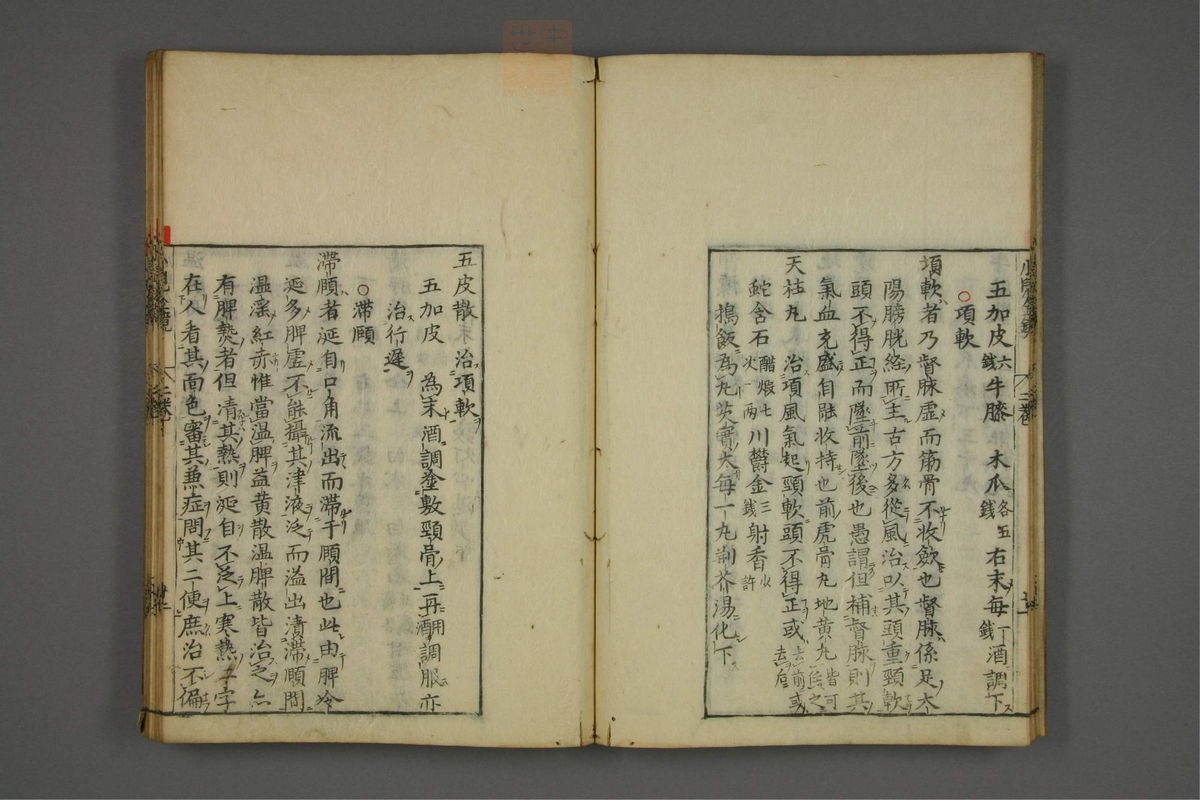 五加皮六錢牛膝 木瓜各五錢 右末每一錢酒調下
○項軟
項軟者乃督脉虛而筋骨不收斂也督脉係足太
陽膀胱經所主古方多從風治以其頭重頸軟
頭不得正而墜前墜後也愚謂但補督脉則其
氣血充盛自能收持也前虎骨丸地黃丸皆可
天柱丸 治項風氣起頸軟頭不得正或去前或去后
蛇含石醋煅七火一兩川鬱金三錢射香少許
搗飯為丸芡實大每一丸荆芥湯化下
五皮散 治項軟
五加皮 為末酒調塗敷頸骨上再用酒調服亦
治行遲
○滯頤
滯頤者涎自口角流出而滯于頤間也此由脾冷
涎多脾虛不能攝其津液泛而溢出漬滯頤間
温淫紅赤惟當温脾益黃散温脾散皆治之亦
有脾熱者但清其熱則涎自不泛上寒熱二字
在人看其面色審其兼症問其二便庶治不偏